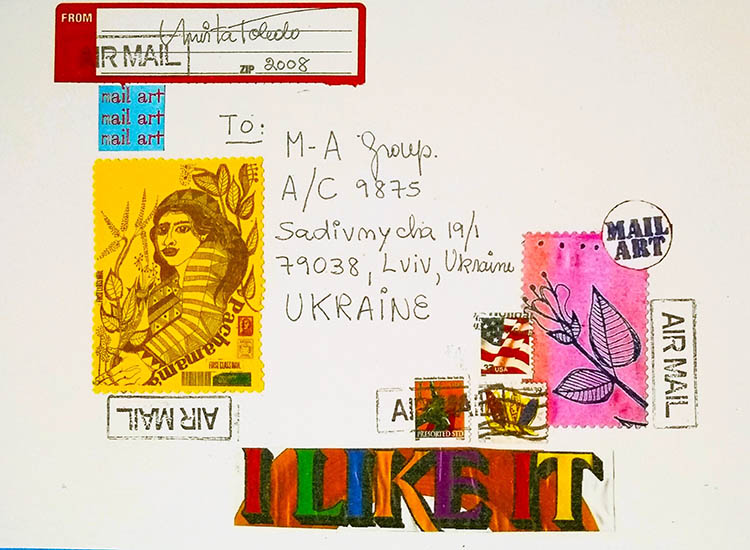 FROM
Anita Toledo
AIR MAIL
ZIP 2008
mail art
mail art
mail art
TO:
M-A Group.
A/C 9875
Sadivnycha 19/1
79038, Lviv, Ukraine
UKRAINE
MAIL
ART
Pachamama
FIRST CLASS MAIL
AIR MAIL
USA
AIR MAIL
AIR MAIL
PRESORTED STD
I LIKE IT